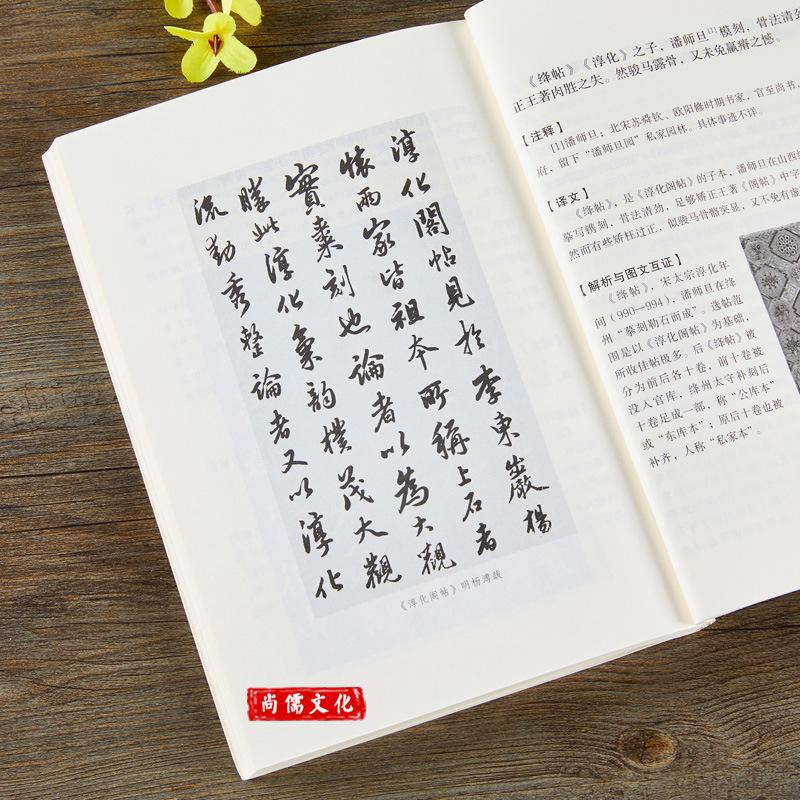 淳化閣帖見於李東巖楊
懷兩家皆祖本所稱上石者
實棗刻也論者以為大觀
勝此淳化氣韵樸茂大觀
流動秀整論者又以淳化
《淳化阁帖》明杨溥跋
尚儒文化
《绛帖》《淳化》之子，潘师旦[1]模刻，骨法清
正王著肉胜之失。然骏马露骨，又未免羸瘠之憾。
【注释】
[1]潘师旦：北宋苏舜钦、欧阳修时期书家，官至尚书，
府，留下“潘师旦园”私家园林。具体事迹不详。
【译文】
《绛帖》，是《淳化阁帖》的子本，潘师旦在山西
摹写镌刻，骨法清劲，足够矫正王著《阁帖》中字
然而有些矫枉过正，似骏马骨骼突显，又不免有虚
【解析与图文互证】
《绛帖》，宋太宗淳化年
间（990—994），潘师旦在绛
州“摹刻勒石而成”。选帖范
围是以《淳化阁帖》为基础，
所收佳帖极多。后《绛帖》被
分为前后各十卷，前十卷被
没入官库，绛州太守补刻后
十卷足成一部，称“公库本”
或“东库本”；原后十卷也被
补齐，人称“私家本”。